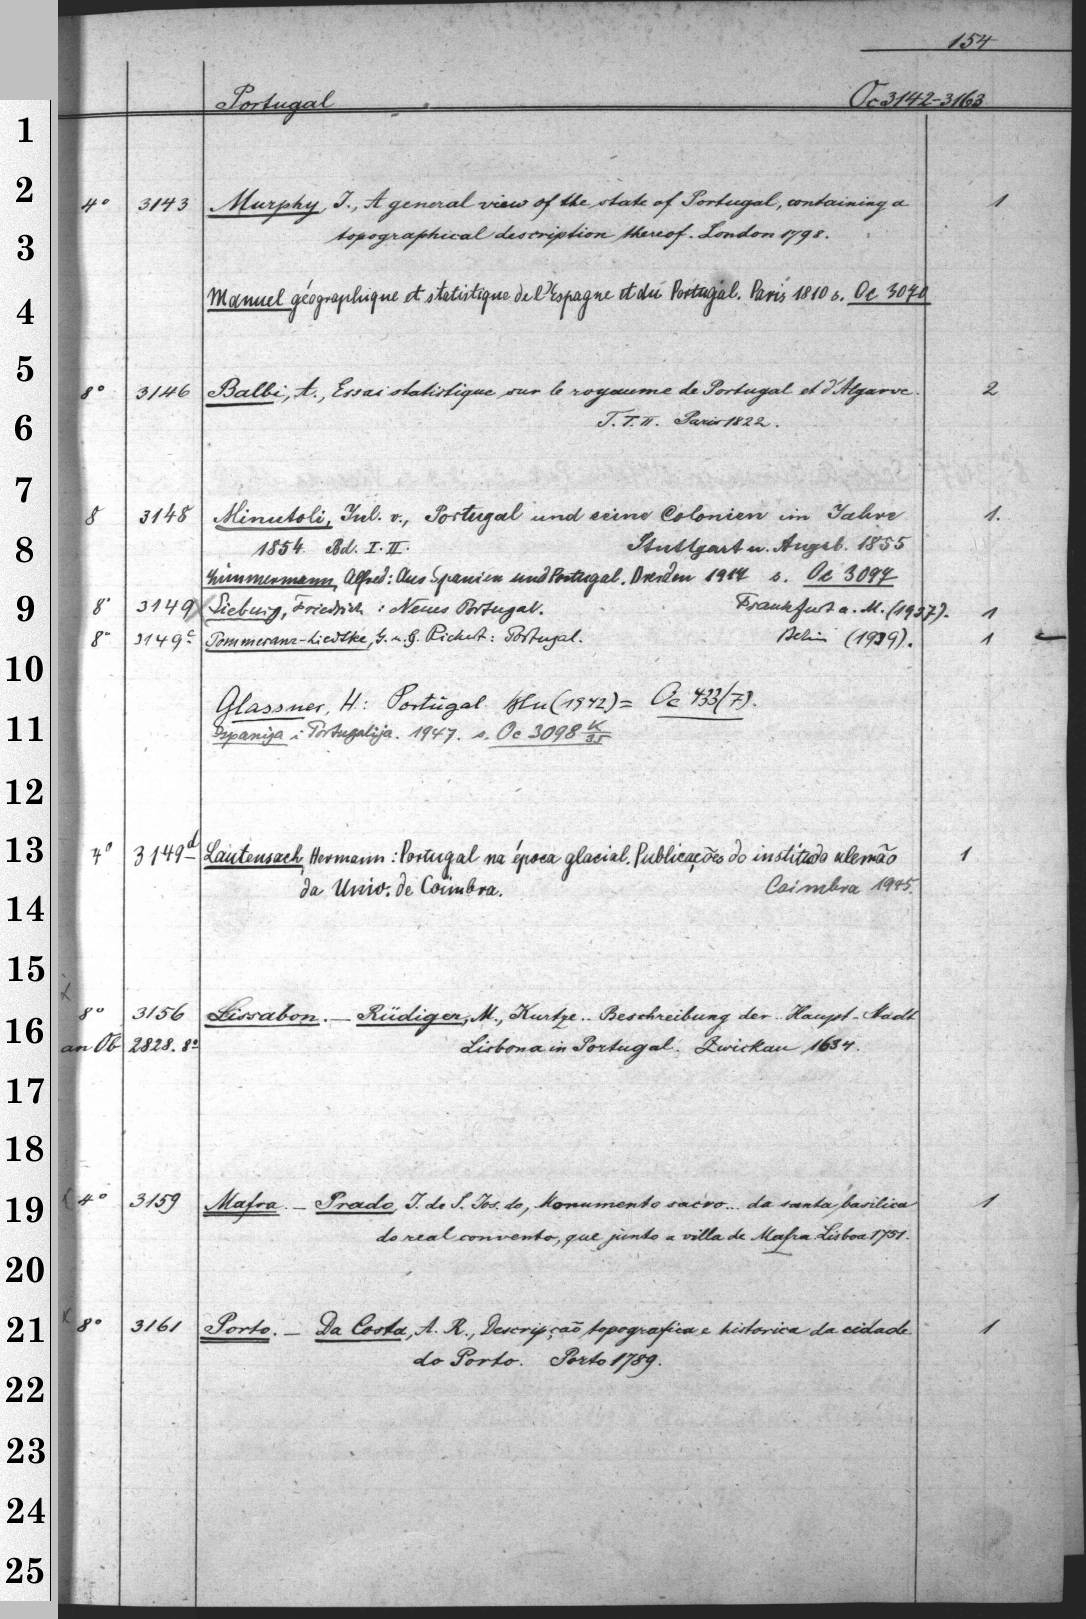 154
Portugal Oc 3142-3163
1
2
4° 3143 Murphy, J., A general view of the state of Portugal, containing a 1
3
topographical description thereof. London 1798.
4
Manuel géographique et statistique de l'Espagne et du Portugal. Paris 1810 s. Oc 3070
5
8° 3146 Balbi, A., Essai statistique sur le royaume de Portugal et d'Algarve. 2
6
T. I. II. Paris 1822.
7
8 3148 Minutoli, Jul. v., Portugal und seine Colonien im Jahre 1.
8
1854 Bd. I. II. Stuttgart u. Augsb. 1855
Zimmermann, Alfred: Aus Spanien und Portugal. Dresden 1914 s. Oc 3097
9
8° 3149 Sieburg, Friedrich: Neues Portugal. Frankfurt a. M. (1937). 1
8° 3149c Pommeranz-Liedtke, G. u. G. Richert: Portugal. Berlin (1939). 1
10
Glassner, H: Portugal Bln (1942) = Oc 433(7).
11
Ispanija i Portugalija. 1947. s. Oc 3098 K/35
12
13
4° 3149d Lautensach, Hermann: Portugal na época glacial. Publicações do instituto alemão 1
da Univ. de Coimbra. Coimbra 1945.
14
15
8° 3156 Lissabon. — Rüdiger, M., Kurtze.. Beschreibung der.. Haupt-Stadt
16
an Ob 2828. 8° Lisbona in Portugal. Zwickau 1634.
17
18
19
4° 3159 Mafra. — Prado, J. de S. Jos. do, Monumento sacro... da santa basilica 1
do real convento, que junto a villa de Mafra. Lisboa 1751.
20
21
8° 3161 Porto. — Da Costa, A. R., Descripção topografica e historica da cidade 1
do Porto. Porto 1789.
22
23
24
25